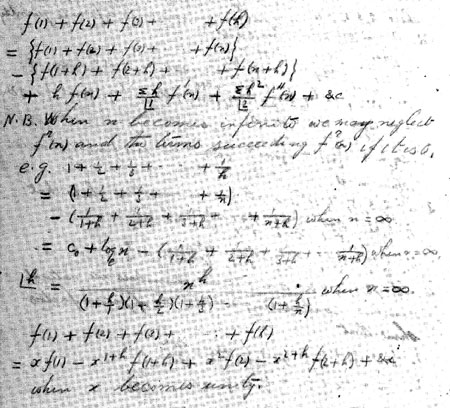 f(1) + f(2) + f(3) + + f(h)
= {f(1) + f(2) + f(3) + + f(n)}
- {f(1+h) + f(2+h) + + f(n+h)}
+ h f(n) + Σh/|1 f'(n) + Σh²/|2 f''(n) + &c
N.B. When n becomes infinite we may neglect
f''(n) and the terms succeeding f''(n) if it is 0,
e.g. 1 + 1/2 + 1/3 + + 1/h
= (1 + 1/2 + 1/3 + + 1/n)
- (1/(1+h) + 1/(2+h) + 1/(3+h) + + 1/(n+h)) when n = ∞
= c₀ + log_e n - (1/(1+h) + 1/(2+h) + 1/(3+h) + 1/(n+h)) when n = ∞.
|h = n^h / (1+h/1)(1+h/2)(1+h/3) (1+h/n) when n = ∞.
f(1) + f(2) + f(3) + + f(h)
= x f(1) - x^{1+h} f(1+h) + x² f(2) - x^{2+h} f(2+h) + &c
when x becomes unity.